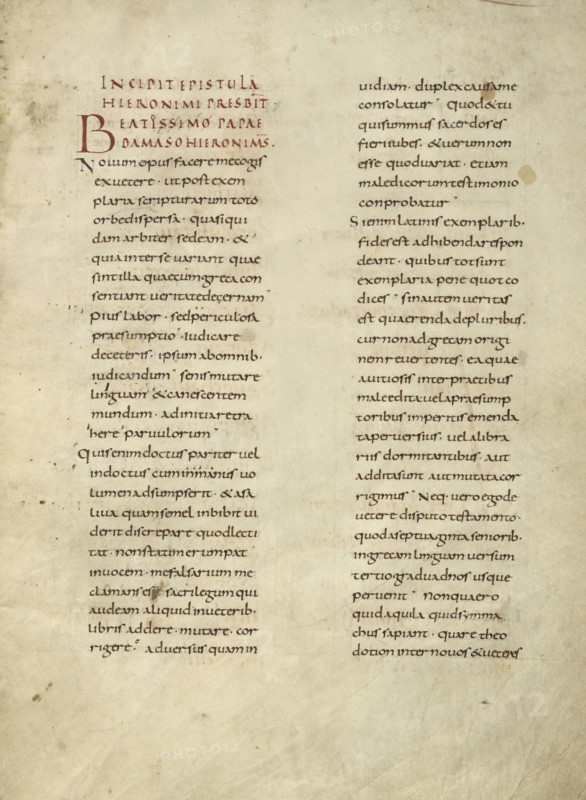 INCIPIT EPISTULA
HIERONIMI PRESBIT̄
BEATISSIMO PAPAE
DAMASO HIERONIMS̄.
Novum opus facere me cogis
ex vetere · ut post exem
plaria scripturarum toto
orbe dispersa · quasi qui
dam arbiter sedeam · &
quia inter se variant quae
sint illa quae cum greca con
sentiant veritate decernam
Pius labor · sed periculosa
praesumptio · iudicare
de ceteris · ipsum ab omnib·
iudicandum senis mutare
linguam & canescentem
mundum · ad initia retra
here parvulorum
Quis enim doctus pariter vel
indoctus cum in manus vo
lumen adsumpserit · & a sa
liva quam semel inbibit vi
derit discrepare quod lecti
tat · non statim erumpat
in vocem · me falsarium me
clamans esse sacrilegum qui
audeam aliquid in veterib·
libris addere · mutare · cor
rigere · adversus quam in
vidiam · duplex causa me
consolatur · quod & tu
qui summus sacerdos es
fieri iubes · & verum non
esse quod variat · etiam
maledicorum testimonio
conprobatur
Si enim latinis exemplarib·
fides est adhibenda respon
deant · quibus tot sunt
exemplaria pene quot co
dices · sin autem veritas
est quaerenda de pluribus.
cur non ad grecam origi
nem revertentes · ea quae
a vitiosis interpraetibus
male edita vel a praesump
toribus imperitis emenda
ta perversius · vel a libra
riis dormitantibus · aut
addita sunt aut mutata cor
rigimus · Neq· vero ego de
vetere disputo testamento·
quod a septuaginta seniorib·
in grecam linguam versum
tertio gradu ad nos usque
pervenit · non quaero
quid aquila quid symma
chus sapiant · quare theo
dotion inter novos & veteres